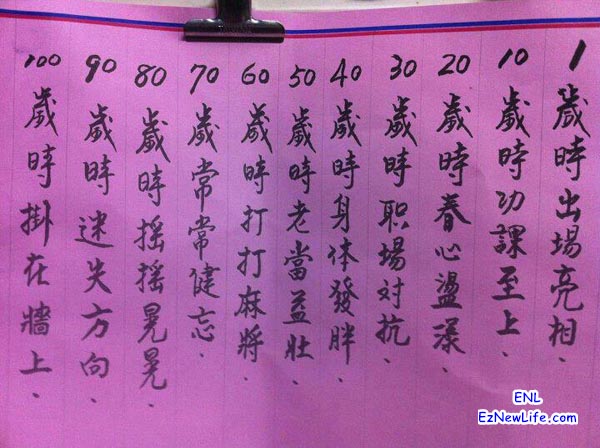 1歲時出場亮相.
10歲時功課至上.
20歲時春心盪漾.
30歲時职場对抗.
40歲時身体發胖.
50歲時老當益壯.
60歲時打打麻將.
70歲常常健忘.
80歲時摇摇晃晃.
90歲時迷失方向.
100歲時掛在牆上.
ENL
EzNewLife.com